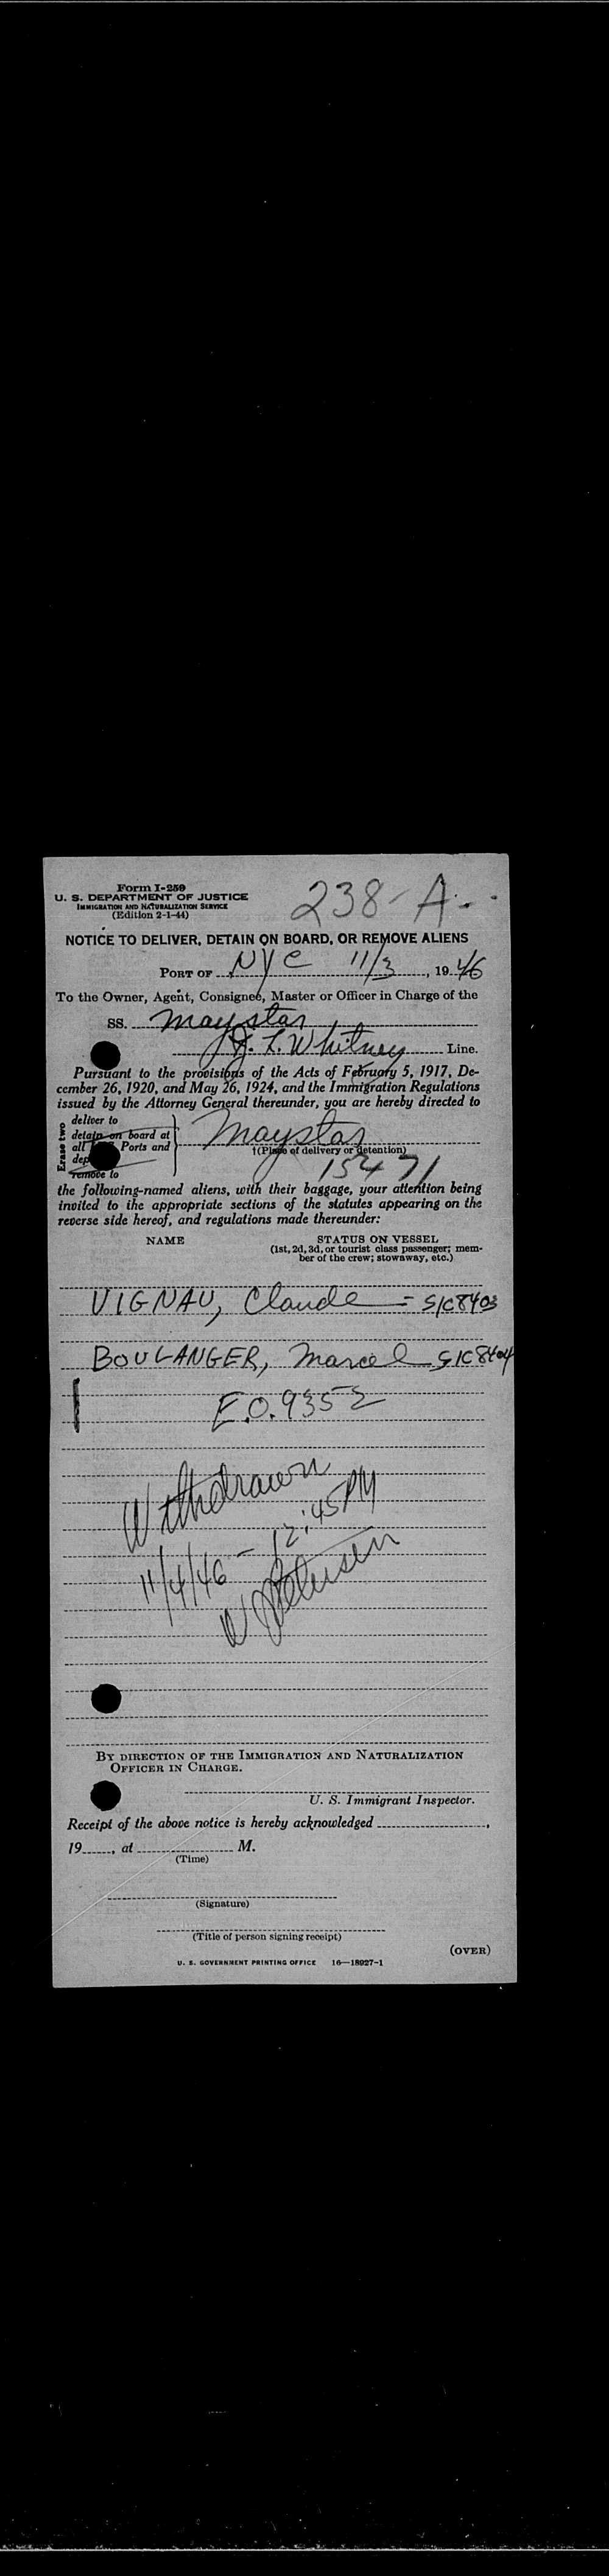 Form I-259
238-A
U. S. DEPARTMENT OF JUSTICE
IMMIGRATION AND NATURALIZATION SERVICE
(Edition 2-1-44)
NOTICE TO DELIVER, DETAIN ON BOARD, OR REMOVE ALIENS
PORT OF NYC 11/3, 1946
To the Owner, Agent, Consignee, Master or Officer in Charge of the
SS. Maystar
J. H. Whitney Line.
Pursuant to the provisions of the Acts of February 5, 1917, De-
cember 26, 1920, and May 26, 1924, and the Immigration Regulations
issued by the Attorney General thereunder, you are hereby directed to
Erase two
deliver to
detain on board at
all Ports and
remove to
Maystar
†(Place of delivery or detention)
15471
the following-named aliens, with their baggage, your attention being
invited to the appropriate sections of the statutes appearing on the
reverse side hereof, and regulations made thereunder:
NAME STATUS ON VESSEL
(1st, 2d, 3d, or tourist class passenger; mem-
ber of the crew; stowaway, etc.)
VIGNAU, Claude - S/C8403
BOULANGER, Marcel S/C8404
E.O. 9352
Withdrawn
11/4/46 - 12:45 PM
W Petersen
BY DIRECTION OF THE IMMIGRATION AND NATURALIZATION
OFFICER IN CHARGE.
U. S. Immigrant Inspector.
Receipt of the above notice is hereby acknowledged ,
19 , at M.
(Time)
(Signature)
(Title of person signing receipt)
(OVER)
U. S. GOVERNMENT PRINTING OFFICE 16—18927-1